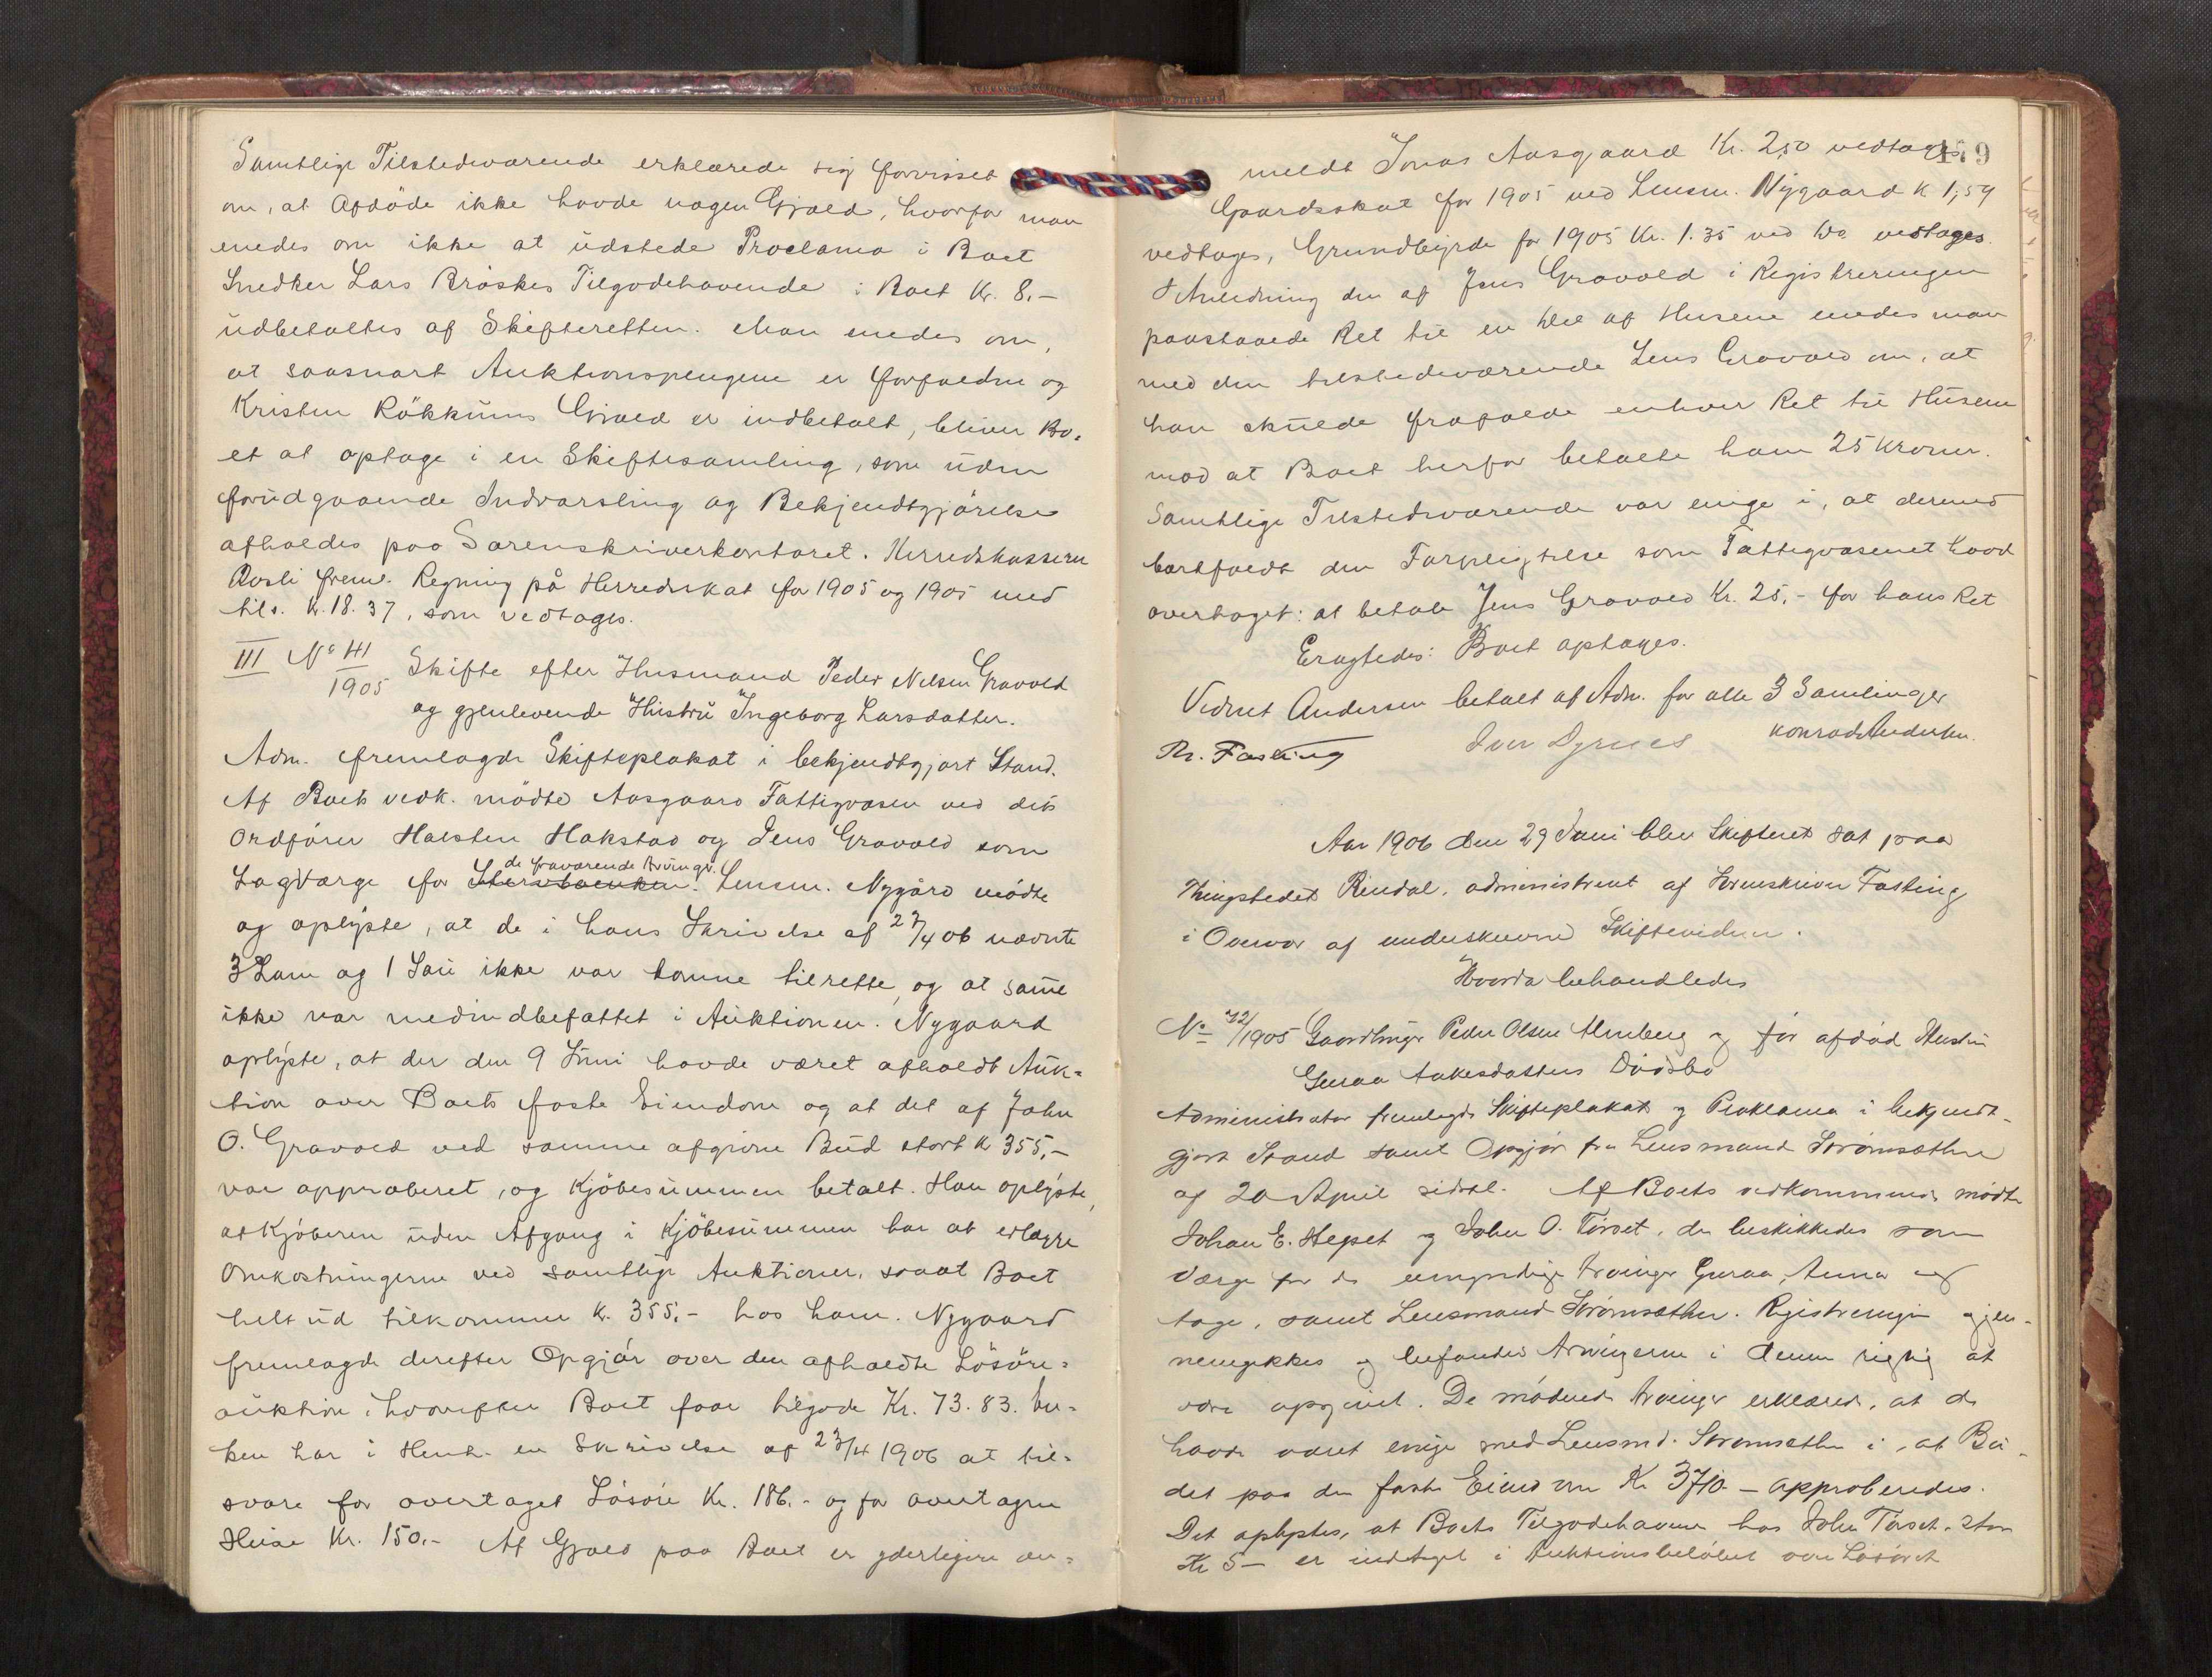 Samtlige Tilstedeværende erklærede sig forvisset
om, at Afdöde ikke havde nogen Gjæld, hvorfor man
enedes om ikke at udstede Proclama i Boet
Snedker Lars Bröskes Tilgodehavende i Boet Kr. 8.-
udbetaltes af Skifteretten. Man enedes om,
at saasnart Auktionspengene er forfaldne og
Kristen Rökkums Gjæld er indbetalt, bliver Bo-
et at optage i en Skiftesamling, som uden
forudgaaende Indvarsling og Bekjendtgjörelse
afholdes paa Sorenskriverkontoret. Herredskasserer
Aasli freml. Regning på Herredsskat for 1905 og 1905 med
tils. Kr. 18.37, som vedtages.
III No 41/1905 Skifte efter Husmand Peder Nelsen Gravold
og gjenlevende Hustru Ingeborg Larsdatter.
Adm. fremlagde Skifteplakat i bekjendtgjort Stand.
Af Boets vedk. mödte Aasgaard Fattigvæsen ved dets
Ordförer Halsten Hakstad og Jens Gravold som
Lagværge for de fraværende Arvinge. Lensm. Nygård mödte
og oplyste, at de i hans Skrivelse af 27/4 06 nævnte
3 Lam og 1 Sau ikke var komne tilrette, og at samme
ikke var medindbefattet i Auktionen. Nygaard
oplyste, at der den 9 Juni havde været afholdt Auk-
tion over Boets faste Eiendom og at det af John
O. Gravold ved samme afgivne Bud stort Kr 355,-
var approberet, og Kjöbesummen betalt. Han oplyste,
at Kjöberen uden Afgang i Kjöbesummen har at erlægge
Omkostningerne ved samtlige Auktioner, saaat Boet
helt ud tilkommer Kr. 355.- hos ham. Nygaard
fremlagde derefter Opgjör over den afholdte Lösöre-
auktion, hvorefter Boet faar tilgode Kr. 73.83. En-
ken har i Henh. en Skrivelse af 23/4 1906 at til-
svare for overtaget Lösöre Kr. 186.- og for overtagne
Huse Kr. 150.- Af Gjæld paa Boet er yderligere an-
meldt Jonas Aasgaard Kr. 2,50 vedtages
179
Gaardsskat for 1905 ved Lensm. Nygaard K 1,59
vedtages, Grundbyrde for 1905 Kr. 1.35 ved do vedtages.
I Anledning den af Jens Gravold i Registreringen
paastaaede Ret til en Del af Husene enedes man
med den tilstedeværende Jens Gravold om, at
han skulde frafalde enhver Ret til Husene
mod at Boet herfor betalte ham 25 Kroner.
Samtlige Tilstedeværende var enige i, at dermed
bortfaldt den Forpligtelse som Fattigvæsenet havde
overtaget: at betale Jens Gravold Kr. 25,- for hans Ret
Eragtedes: Boet optages.
Vidnet Andersen betalt af Adm. for alle 3 Samlinger
Th. Fasting Iver Dyrnes Konrad Andersen.
Aar 1906 den 29 Juni blev Skifteret sat paa
Thingstedet Rindal, administreret af Sorenskriver Fasting
i Overvær af underskrevne Skiftevidner.
Hvorda behandledes
No 42/1905 Gaardbruger Peder Olsen Almberg og før afdöd Hustru
Guraa Aakesdatters Dödsbo
Administrator fremlagde Skifteplakat og Proklama i bekjendt-
gjort Stand samt Opgjör fra Lensmand Strömsæther
af 20 April sidstl. Af Boets vedkommende mödte
Johan E. Hepset og John O. Törset, der beskikkedes som
Værge for de umyndige Arvinger Guraa, Anna og
Aage, samt Lensmand Strömsæther. Registreringen gjen-
nemgikkes og befandtes Arvingerne i denne rigtig at
være opgivet. De mödende Arvinger erklærede, at de
havde været enige med Lensmd. Strömsæther i, at Bu-
det paa den faste Eiendom Kr 3710 - approberedes.
Det oplystes, at Boets Tilgodehavende hos John Törset, stor
Kr 5 - er indtaget i Auktionsbelöbet over Lösöret